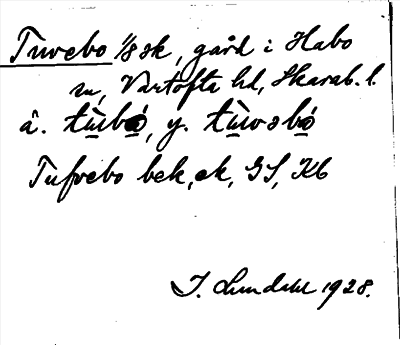 Tuvebo 1/8 sk, gård i Habo
sn, Vartofta hd, Skarab. l.
â. tùbó, y. tùvəbó
Tufvebo bek, ek, GS, Kb
I. Lundahl 1928.